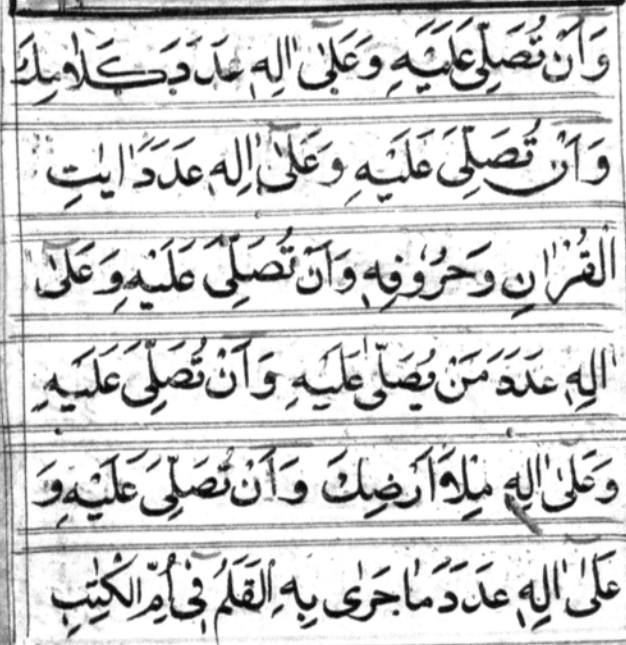 وَاَنْ تُصَلِّىَ عَلَيْهِ وَعَلٰٓى اٰلِهٖ عَدَدَ كَلَامِكَ
وَاَنْ تُصَلِّىَ عَلَيْهِ وَعَلٰٓى اٰلِهٖ عَدَدَ اٰيٰتِ
الْقُرْاٰنِ وَحُرُوْفِهٖ وَاَنْ تُصَلِّىَ عَلَيْهِ وَعَلٰٓى
اٰلِهٖ عَدَدَ مَنْ يُصَلِّىْ عَلَيْهِ وَاَنْ تُصَلِّىَ عَلَيْهِ
وَعَلٰٓى اٰلِهٖ مِلْأَ اَرْضِكَ وَاَنْ تُصَلِّىَ عَلَيْهِ وَ
عَلٰٓى اٰلِهٖ عَدَدَ مَا جَرٰى بِهِ الْقَلَمُ فِىْٓ اُمِّ الْكِتٰبِ